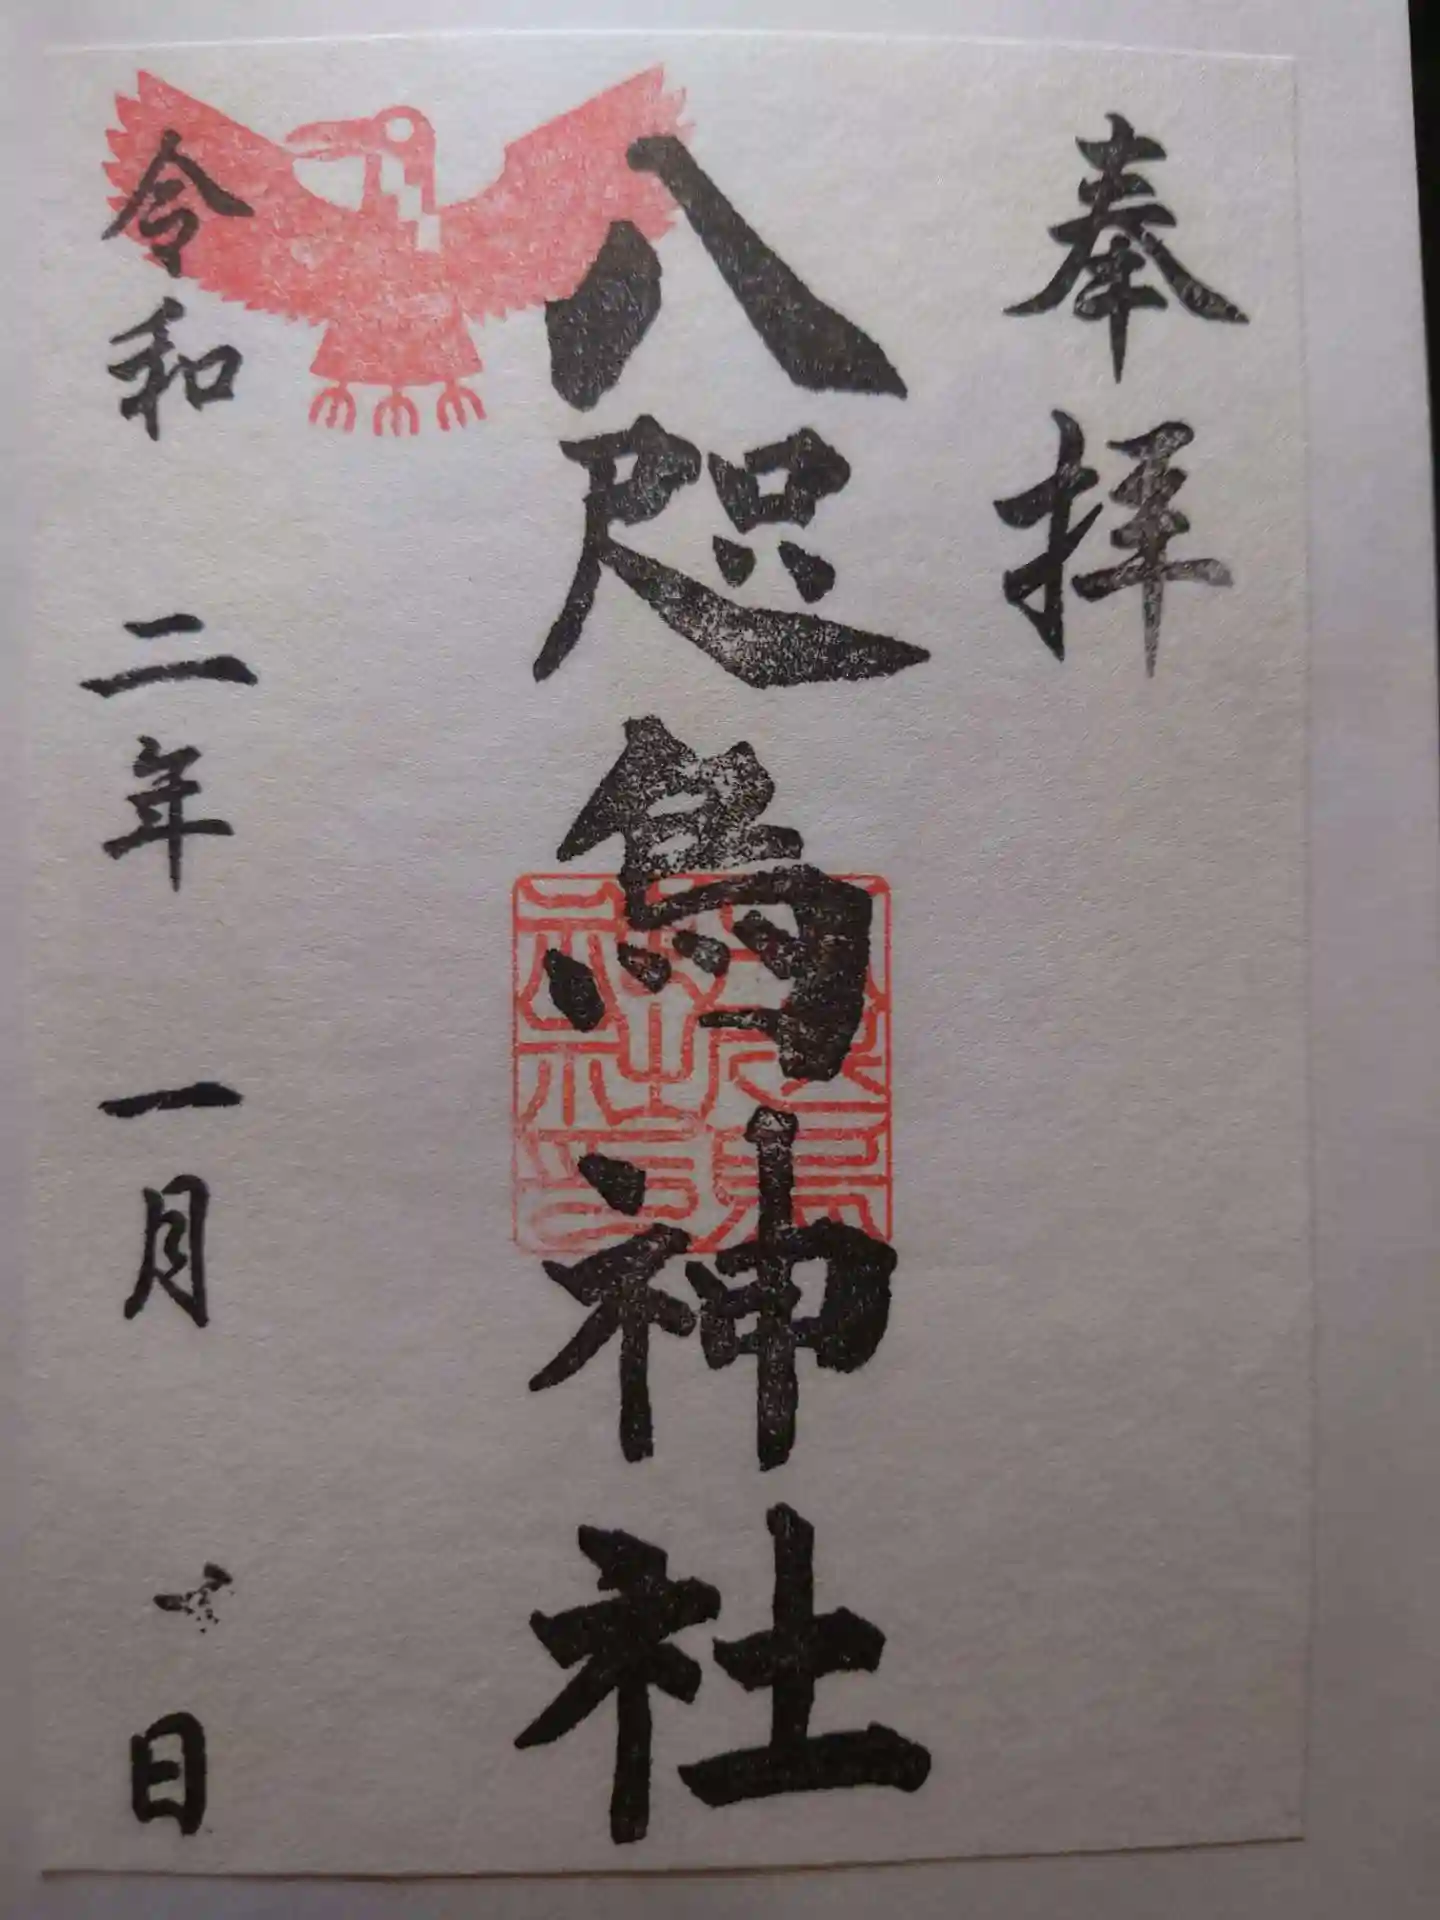 奉拝
八咫烏神社
令和二年一月 日